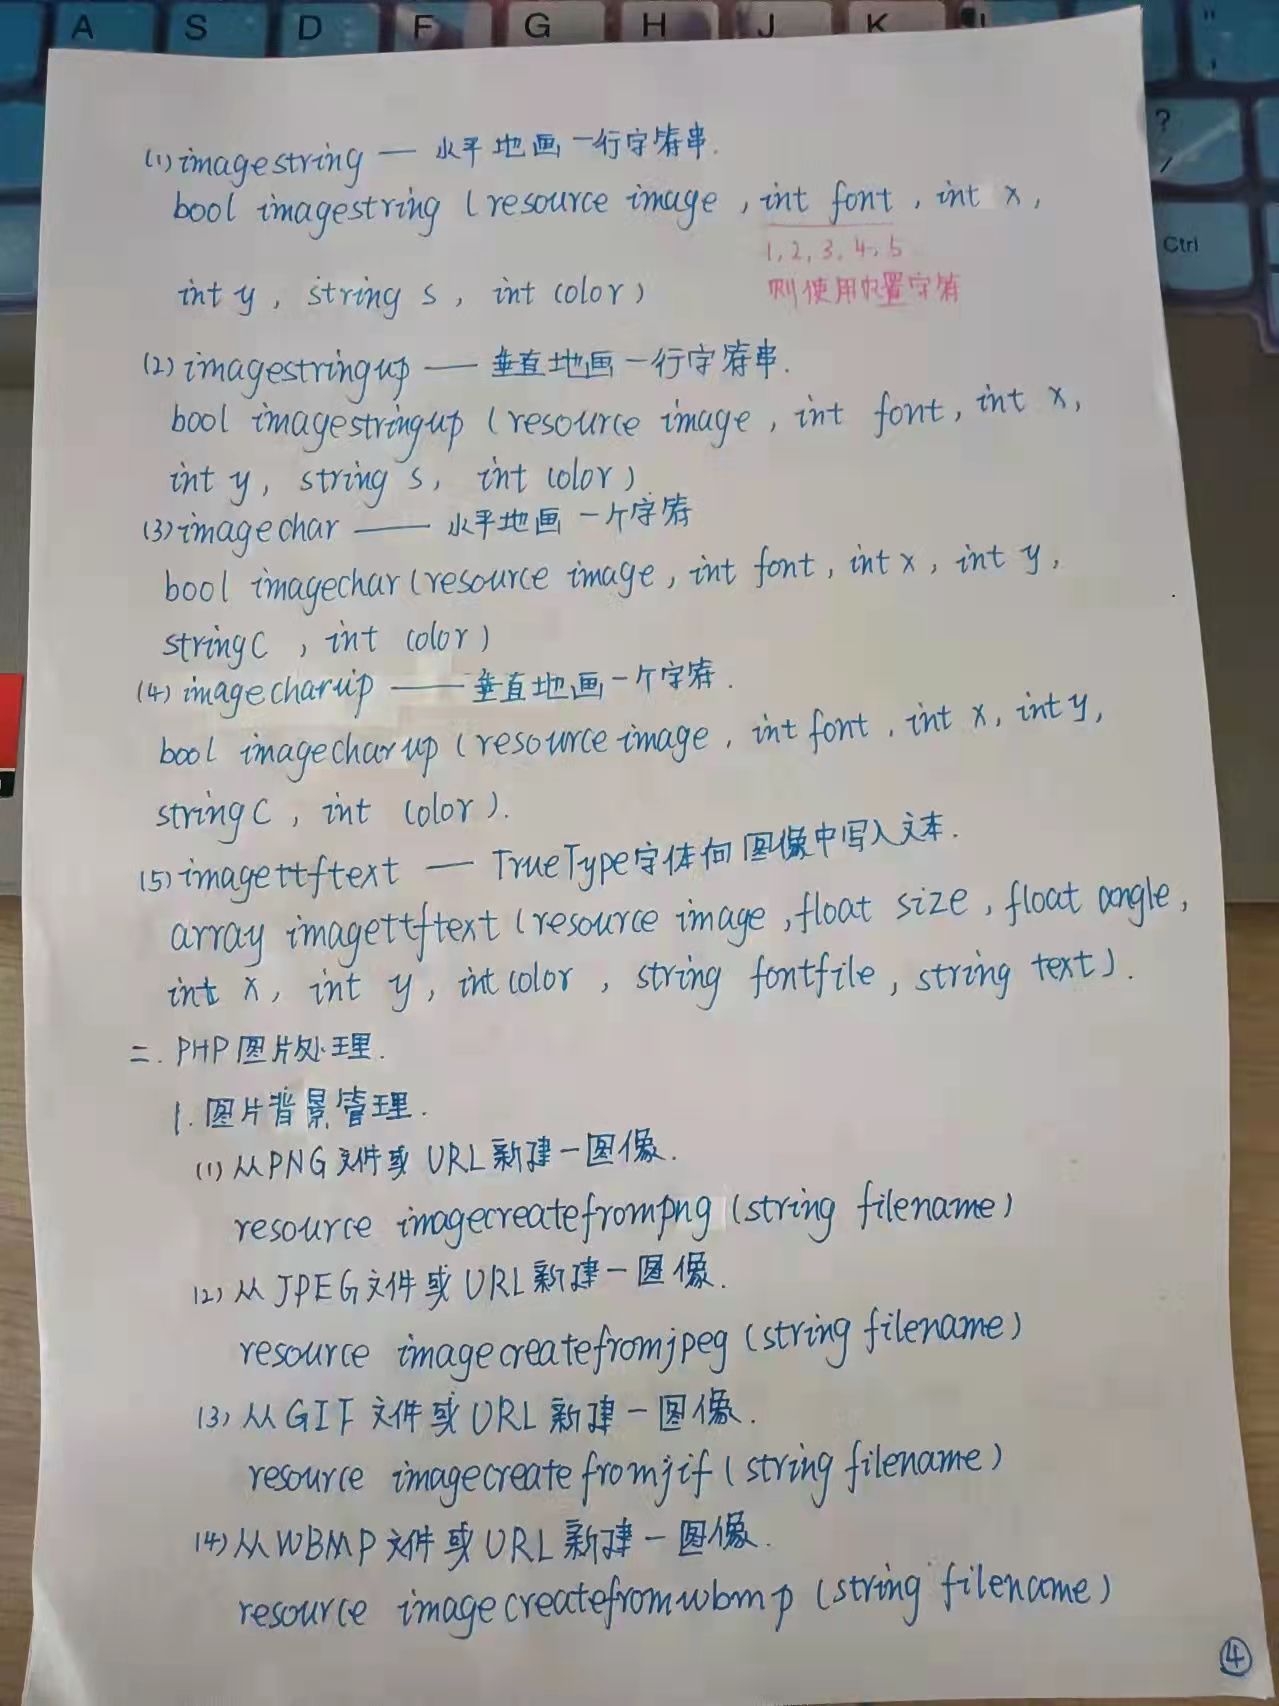 A S D F G H J K L
?
/
Ctrl
(1) imagestring — 水平地画一行字符串.
bool imagestring (resource image , int font , int x ,
1, 2, 3, 4, 5
则使用内置字符
int y , string s , int color)
(2) imagestringup — 垂直地画一行字符串.
bool imagestringup (resource image , int font , int x ,
int y , string s , int color)
(3) imagechar — 水平地画一个字符
bool imagechar (resource image , int font , int x , int y ,
string C , int color)
(4) imagecharup — 垂直地画一个字符.
bool imagecharup (resource image , int font , int x , int y ,
string C , int color).
(5) imagettftext — TrueType字体向图像中写入文本.
array imagettftext (resource image , float size , float angle ,
int x , int y , int color , string fontfile , string text).
二. PHP图片处理.
1. 图片背景管理.
(1) 从PNG文件或URL新建一图像.
resource imagecreatefrompng (string filename)
(2) 从JPEG文件或URL新建一图像.
resource imagecreatefromjpeg (string filename)
(3) 从GIF文件或URL新建一图像.
resource imagecreatefromjif (string filename)
(4) 从WBMP文件或URL新建一图像.
resource imagecreatefromwbmp (string filename)
④